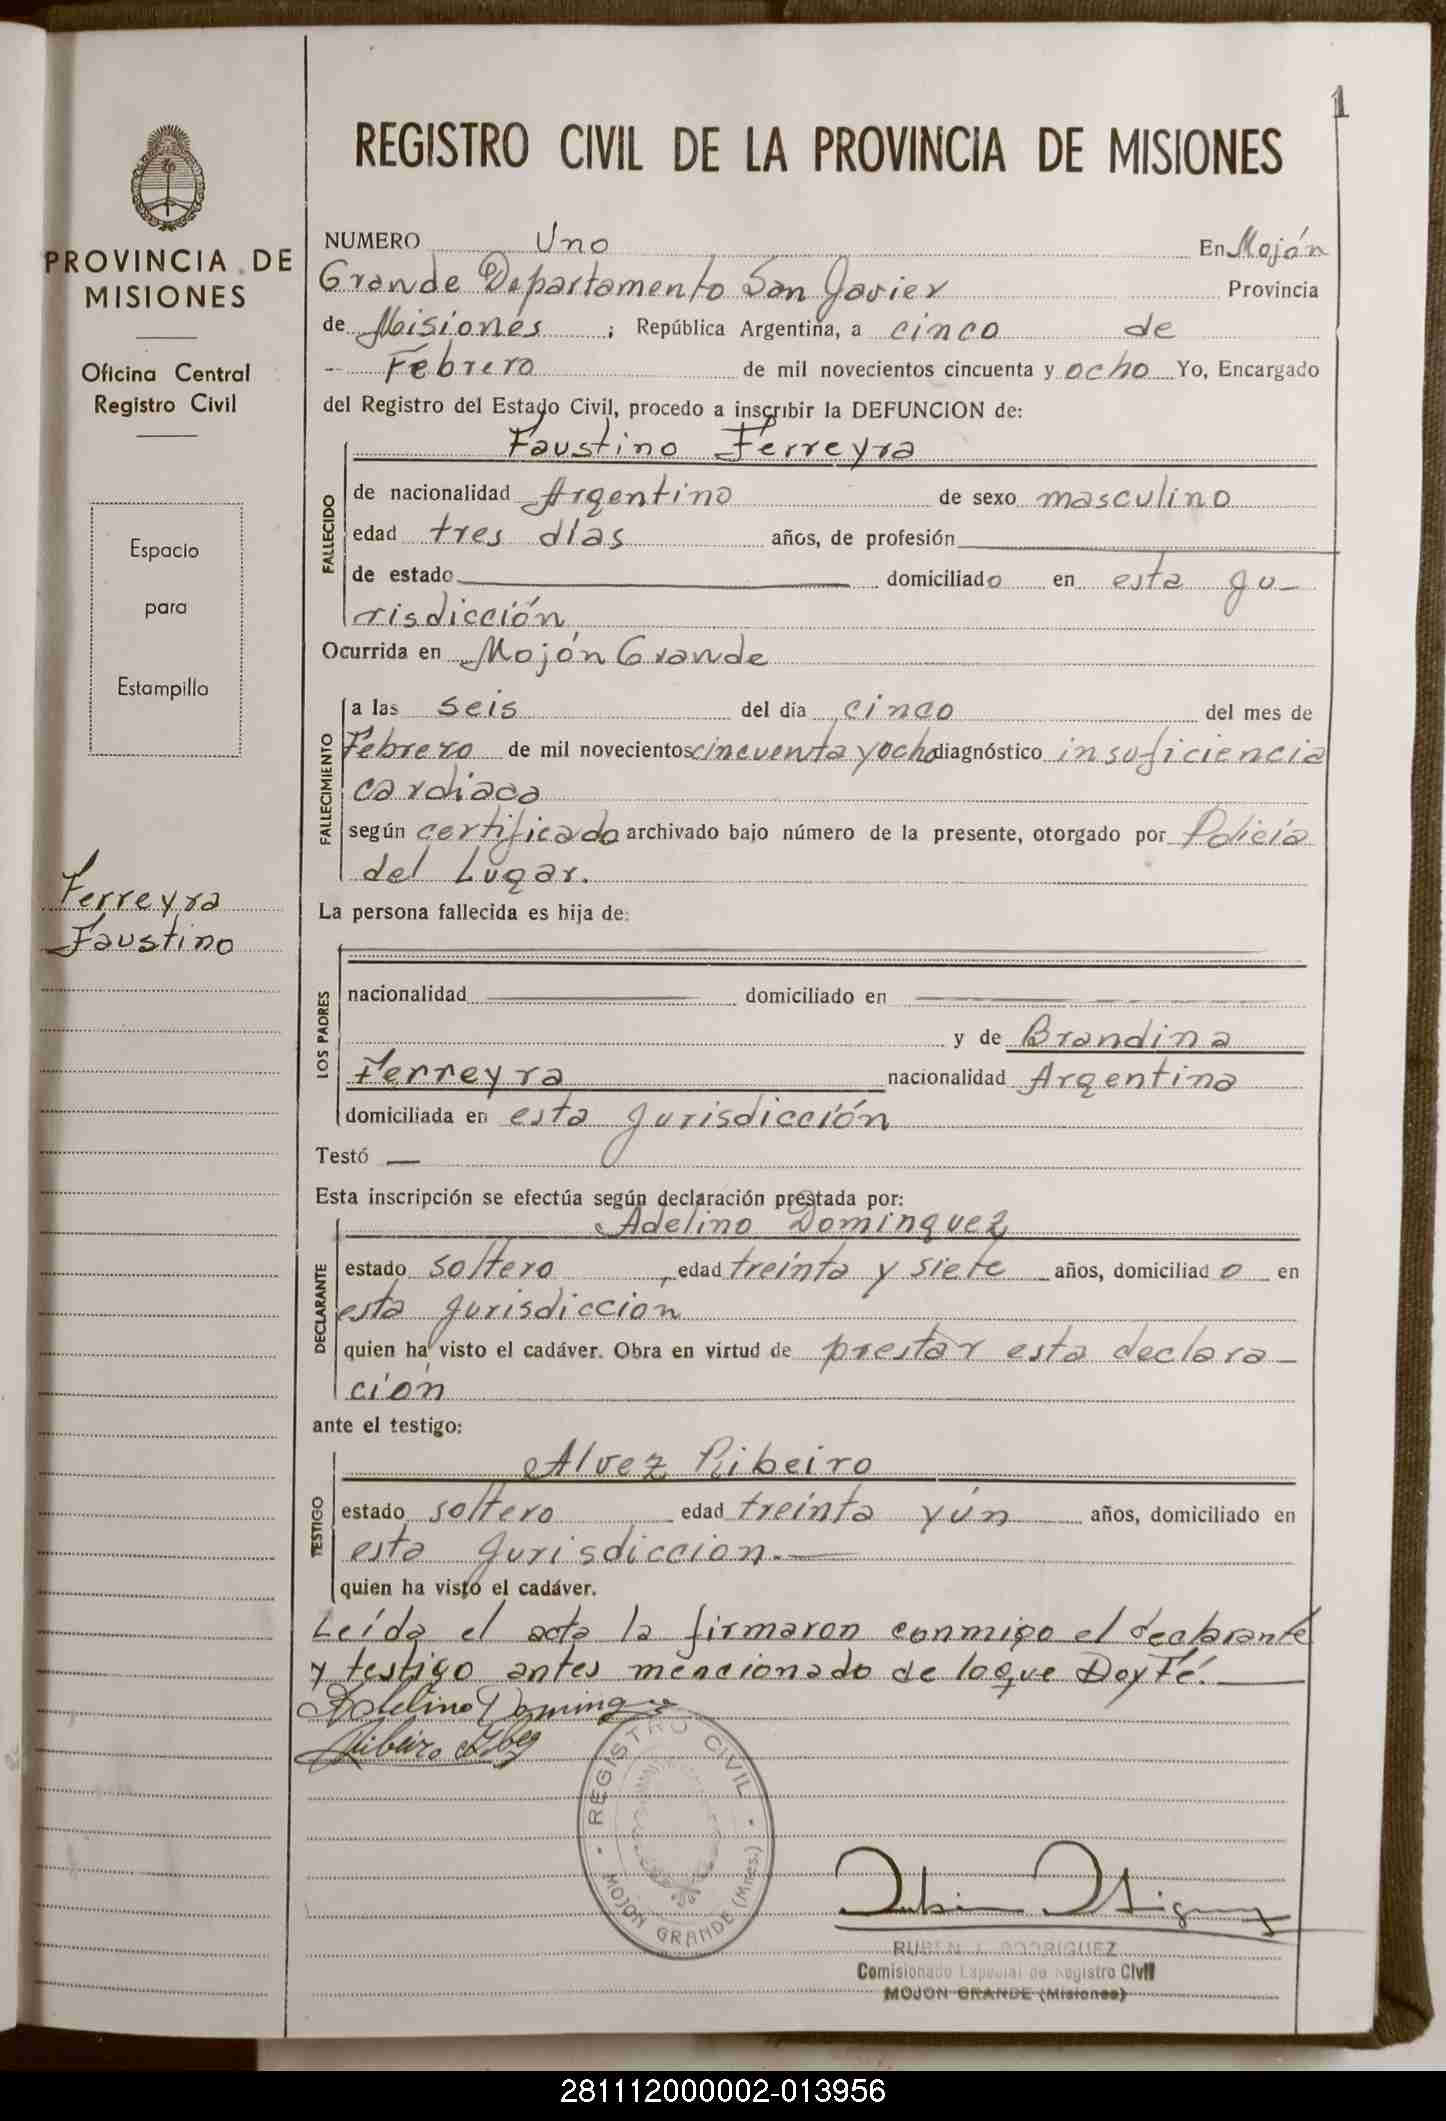 1
REGISTRO CIVIL DE LA PROVINCIA DE MISIONES
PROVINCIA DE
MISIONES
Oficina Central
Registro Civil
Espacio
para
Estampilla
Ferreyra
Faustino
NUMERO Uno En Mojón
Grande Departamento San Javier Provincia
de Misiones ; República Argentina, a cinco de
Febrero de mil novecientos cincuenta y ocho Yo, Encargado
del Registro del Estado Civil, procedo a inscribir la DEFUNCION de:
Faustino Ferreyra
FALLECIDO
de nacionalidad Argentino de sexo masculino
edad tres días años, de profesión
de estado domiciliado en esta ju-
risdicción
Ocurrida en Mojón Grande
FALLECIMIENTO
a las seis del día cinco del mes de
Febrero de mil novecientos cincuenta y ocho diagnóstico insuficiencia
cardiaca
según certificado archivado bajo número de la presente, otorgado por Policía
del Lugar.
La persona fallecida es hija de:
LOS PADRES
nacionalidad domiciliado en
y de Brandina
Ferreyra nacionalidad Argentina
domiciliada en esta jurisdicción
Testó —
Esta inscripción se efectúa según declaración prestada por:
Adelino Dominguez
DECLARANTE
estado soltero , edad treinta y siete años, domiciliado en
esta jurisdicción
quien ha visto el cadáver. Obra en virtud de prestar esta declara-
ción
ante el testigo:
Alvez Ribeiro
TESTIGO
estado soltero edad treinta y ún años, domiciliado en
esta jurisdicción.—
quien ha visto el cadáver.
Leída el acta la firmaron conmigo el declarante
y testigo antes mencionado de loque Doy Fé.—
Adelino Domingue
Ribeiro Alvez
REGISTRO CIVIL
MOJON GRANDE (Mnes.)
RUBEN J. RODRIGUEZ
Comisionado Especial de Registro Civil
MOJON GRANDE (Misiones)
281112000002-013956